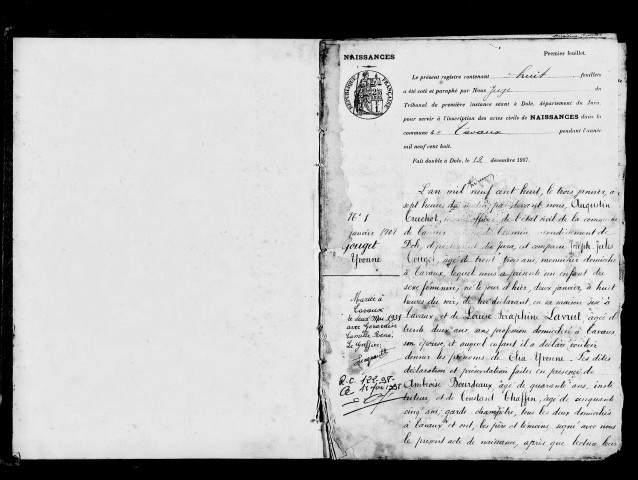 NAISSANCES
Premier feuillet.
RÉPUBLIQUE FRANÇAISE
Le présent registre contenant huit feuillets
a été coté et paraphé par Nous Juge du
Tribunal de première instance séant à Dole, département du Jura,
pour servir à l'inscription des actes civils de NAISSANCES dans la
commune de Tavaux pendant l'année
mil neuf cent huit.
Fait double à Dole, le 12 décembre 1907.
L'an mil neuf cent huit, le trois janvier, à
sept heures du par devant nous, Augustin
de l'état civil de la commune
de arrondissement de
Dole, département du Jura, est comparu Joseph Jules
Gouget, âgé de trente trois ans, domicilié
à Tavaux, lequel nous a présenté un enfant du
sexe féminin, né le jour d'hier, deux janvier, à huit
heures du soir, de lui déclarant, en sa maison sise à
Tavaux, et de Louise Séraphine âgée de
trente deux ans, sans profession domiciliée à Tavaux
son épouse, et auquel enfant il a déclaré vouloir
donner les prénoms de Yvonne. Les dites
déclaration et présentation faites en présence de
Ambroise Bourdaux, âgé de quarante ans, insti-
tuteur, et de Constant Chaffin, âgé de cinquante
cinq ans, garde champêtre, tous les deux domiciliés
à Tavaux et ont, les père et témoins, signé avec nous
le présent acte de naissance, après que lecture leur
N° 1
janvier 1908
Gouget
Yvonne
Mariée à
Tavaux
le deux Mai 1931
avec
Camille
Le Greffier,